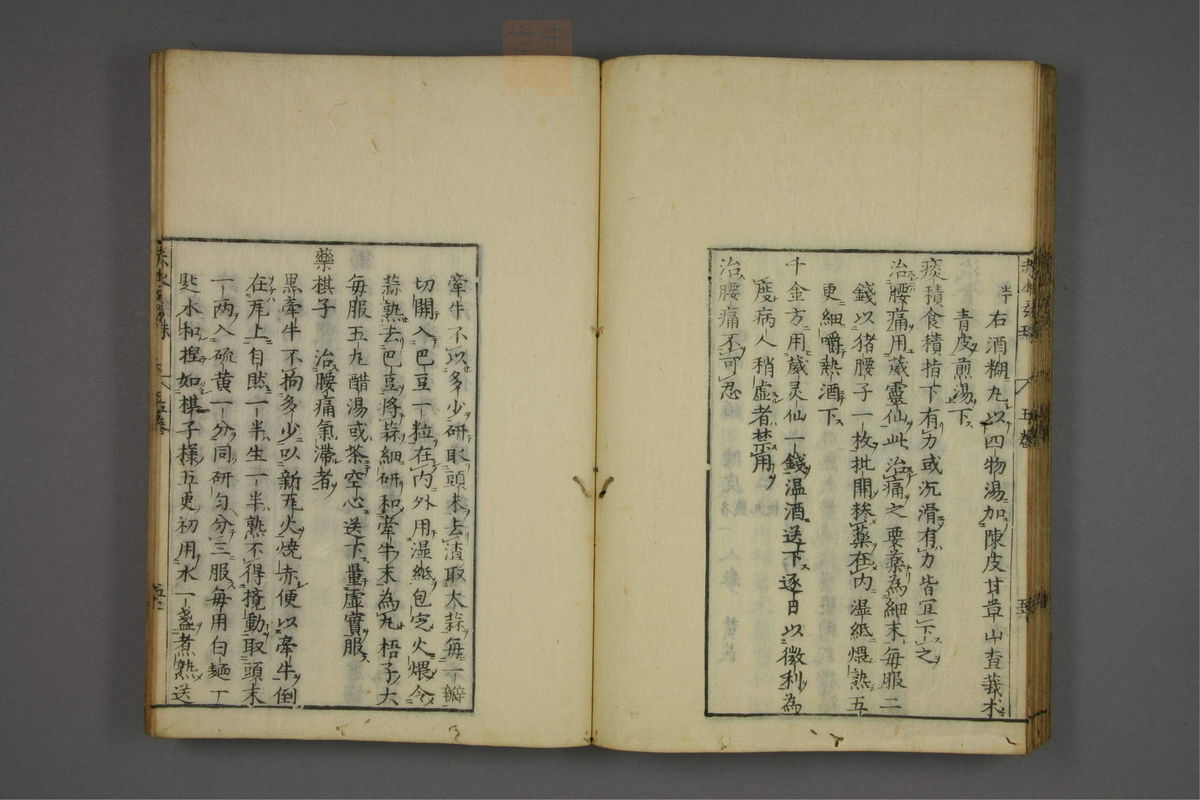 右酒糊丸以四物湯加陳皮甘草山査莪朮
青皮煎湯下
痰積食積指下有力或沉滑有力皆宜下之
治腰痛用葳靈仙此治痛之要藥為細末每服二
錢以猪腰子一枚批開糝藥在内湿紙煨熟五
更細嚼熱酒下
千金方用葳灵仙一錢温酒送下逐日以微利為
度病人稍虚者禁用
治腰痛不可忍
牽牛不以多少研取頭末去渣取大蒜每一瓣
切開入巴豆一粒在内外用湿紙包定火煨令
蒜熟去巴豆將蒜細研和牽牛末為丸梧子大
每服五丸醋湯或茶空心送下量虚實服
藥棋子　治腰痛氣滯者
黒牽牛不拘多少以新瓦火燒赤便以牽牛倒
在瓦上自然一半生一半熟不得撓動取頭末
一兩入硫黄一分同研匀分三服每用白麺一
匙水和捏如棋子樣五更初用水一盞煮熟送